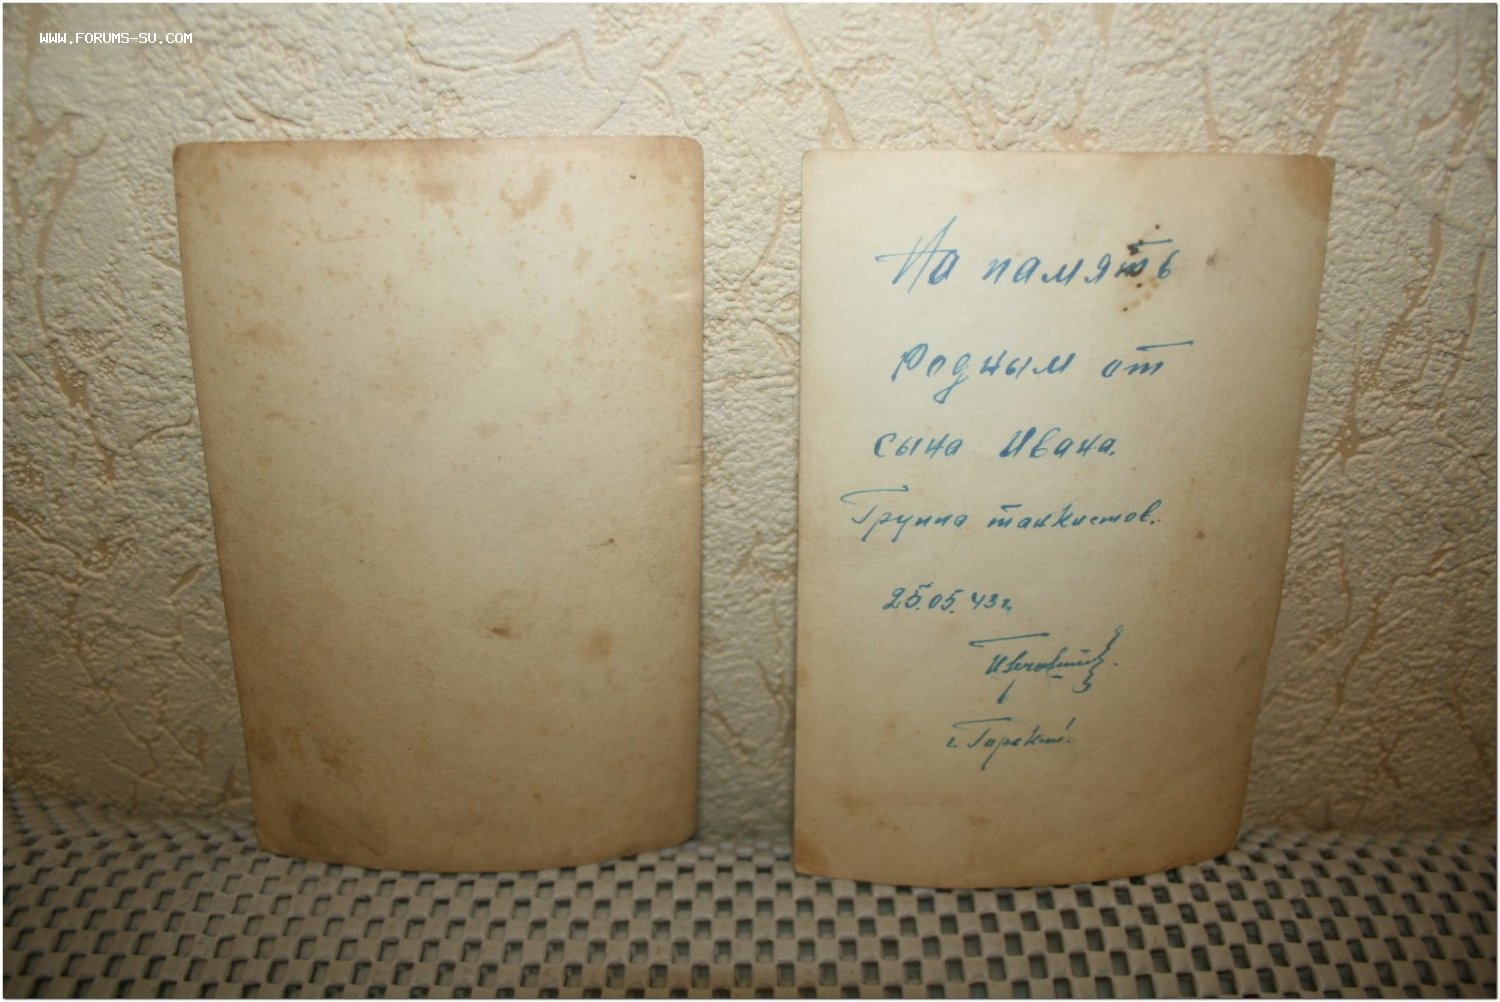 WWW.FORUMS-SU.COM
На память
Родным от
сына Ивана.
Группа танкистов.
25.05.43г.
г. Горький.